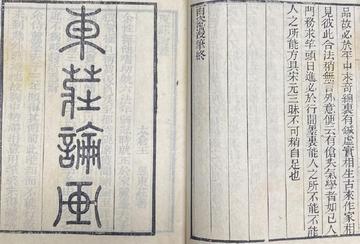 品故必於平中求奇綿裏有鍼虛實相生古來作家相
見彼此合法稍無言外意便云有傖夫氣學者如已入
門務求竿頭日進必於行間墨裏能人之所不能不能
人之所能方具宋元三昧不可稍自足也
雨窗漫筆終
東莊論畫